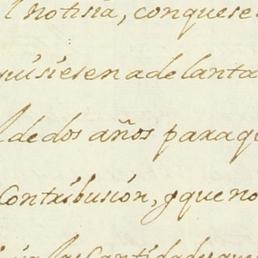 notisia, conquese
usiesen adelanta
de dos años para q
Contribusion, y que no
las Cantidades que